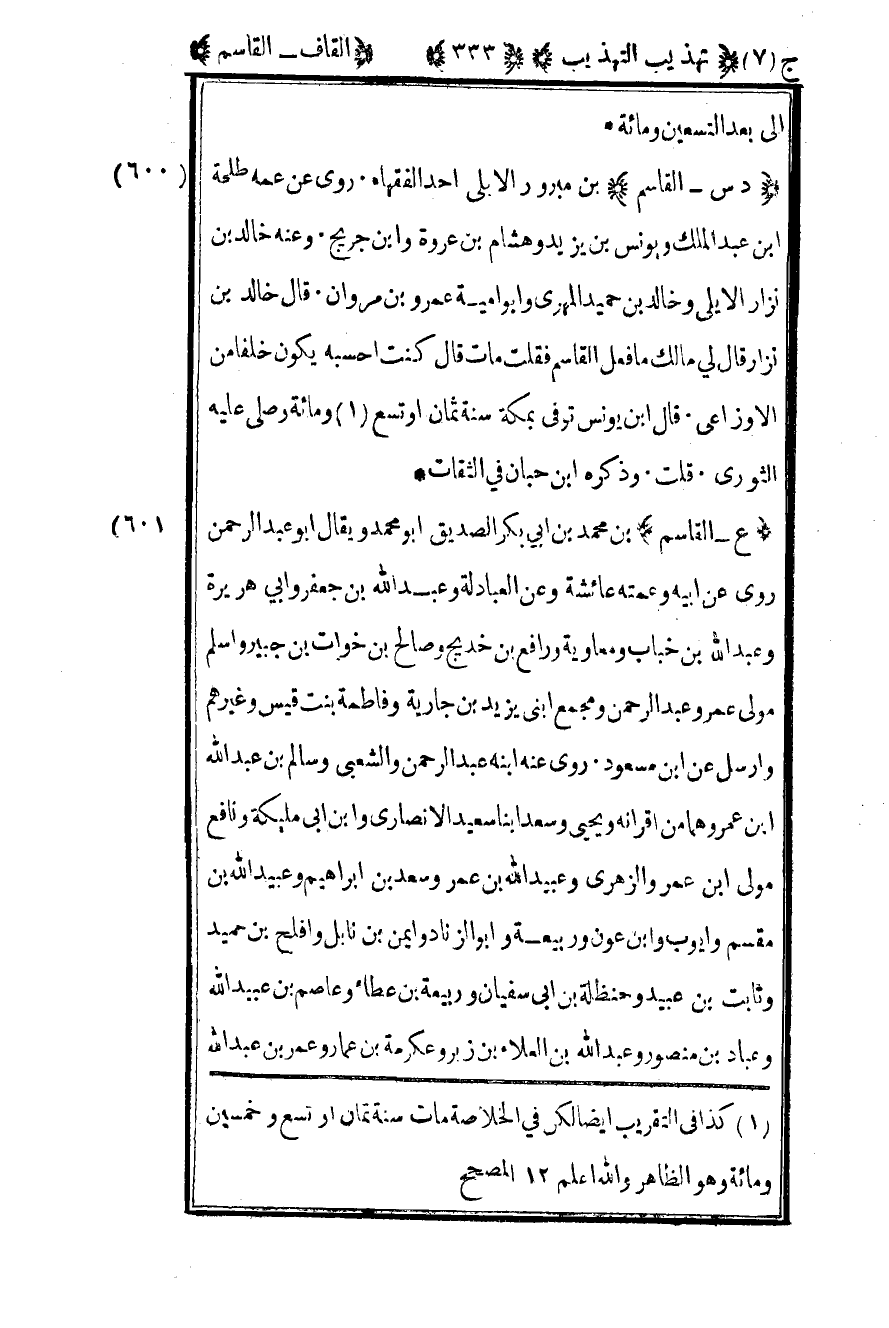 ج (٧) تهذيب التهذيب ٣٣٣ القاف ــ القاسم
الى بعد التسعين ومائة *
(٦٠٠) د س ــ القاسم بن مبرور الايلى احد الفقهاء ٠ روى عن عمه طلحة
ابن عبد الملك ويونس بن يزيد وهشام بن عروة وابن جريج ٠ وعنه خالد بن
نزار الايلى وخالد بن حميد المهرى وابو امية عمرو بن مروان ٠ قال خالد بن
نزار قال لي مالك ما فعل القاسم فقلت مات قال كنت احسبه يكون خلفا من
الاوزاعى ٠ قال ابن يونس توفى بمكة سنة ثمان او تسع (١) ومائة وصلى عليه
الثورى ٠ قلت ٠ وذكره ابن حبان في الثقات *
(٦٠١ ع ــ القاسم بن محمد بن ابي بكر الصديق ابو محمد ويقال ابو عبد الرحمن
روى عن ابيه وعمته عائشة وعن العبادلة وعبد الله بن جعفر وابي هريرة
وعبد الله بن خباب ومعاوية ورافع بن خديج وصالح بن خوات بن جبير واسلم
مولى عمر وعبد الرحمن ومجمع ابنى يزيد بن جارية وفاطمة بنت قيس وغيرهم
وارسل عن ابن مسعود ٠ روى عنه ابنه عبد الرحمن والشعبى وسالم بن عبد الله
ابن عمر وهما من اقرانه ويحيى وسعد ابنا سعيد الانصارى وابن ابى مليكة ونافع
مولى ابن عمر والزهرى وعبيد الله بن عمر وسعد بن ابراهيم وعبيد الله بن
مقسم وايوب وابن عون وربيعة وابو الزناد وايمن بن نابل وافلح بن حميد
وثابت بن عبيد وحنظلة بن ابى سفيان وربيعة بن عطاء وعاصم بن عبيد الله
وعباد بن منصور وعبد الله بن العلاء بن زبر وعكرمة بن عمار وعمر بن عبد الله
(١) كذا فى التقريب ايضا لكن في الخلاصة مات سنة ثمان او تسع وخمسين
ومائة وهو الظاهر والله اعلم ١٢ المصحح